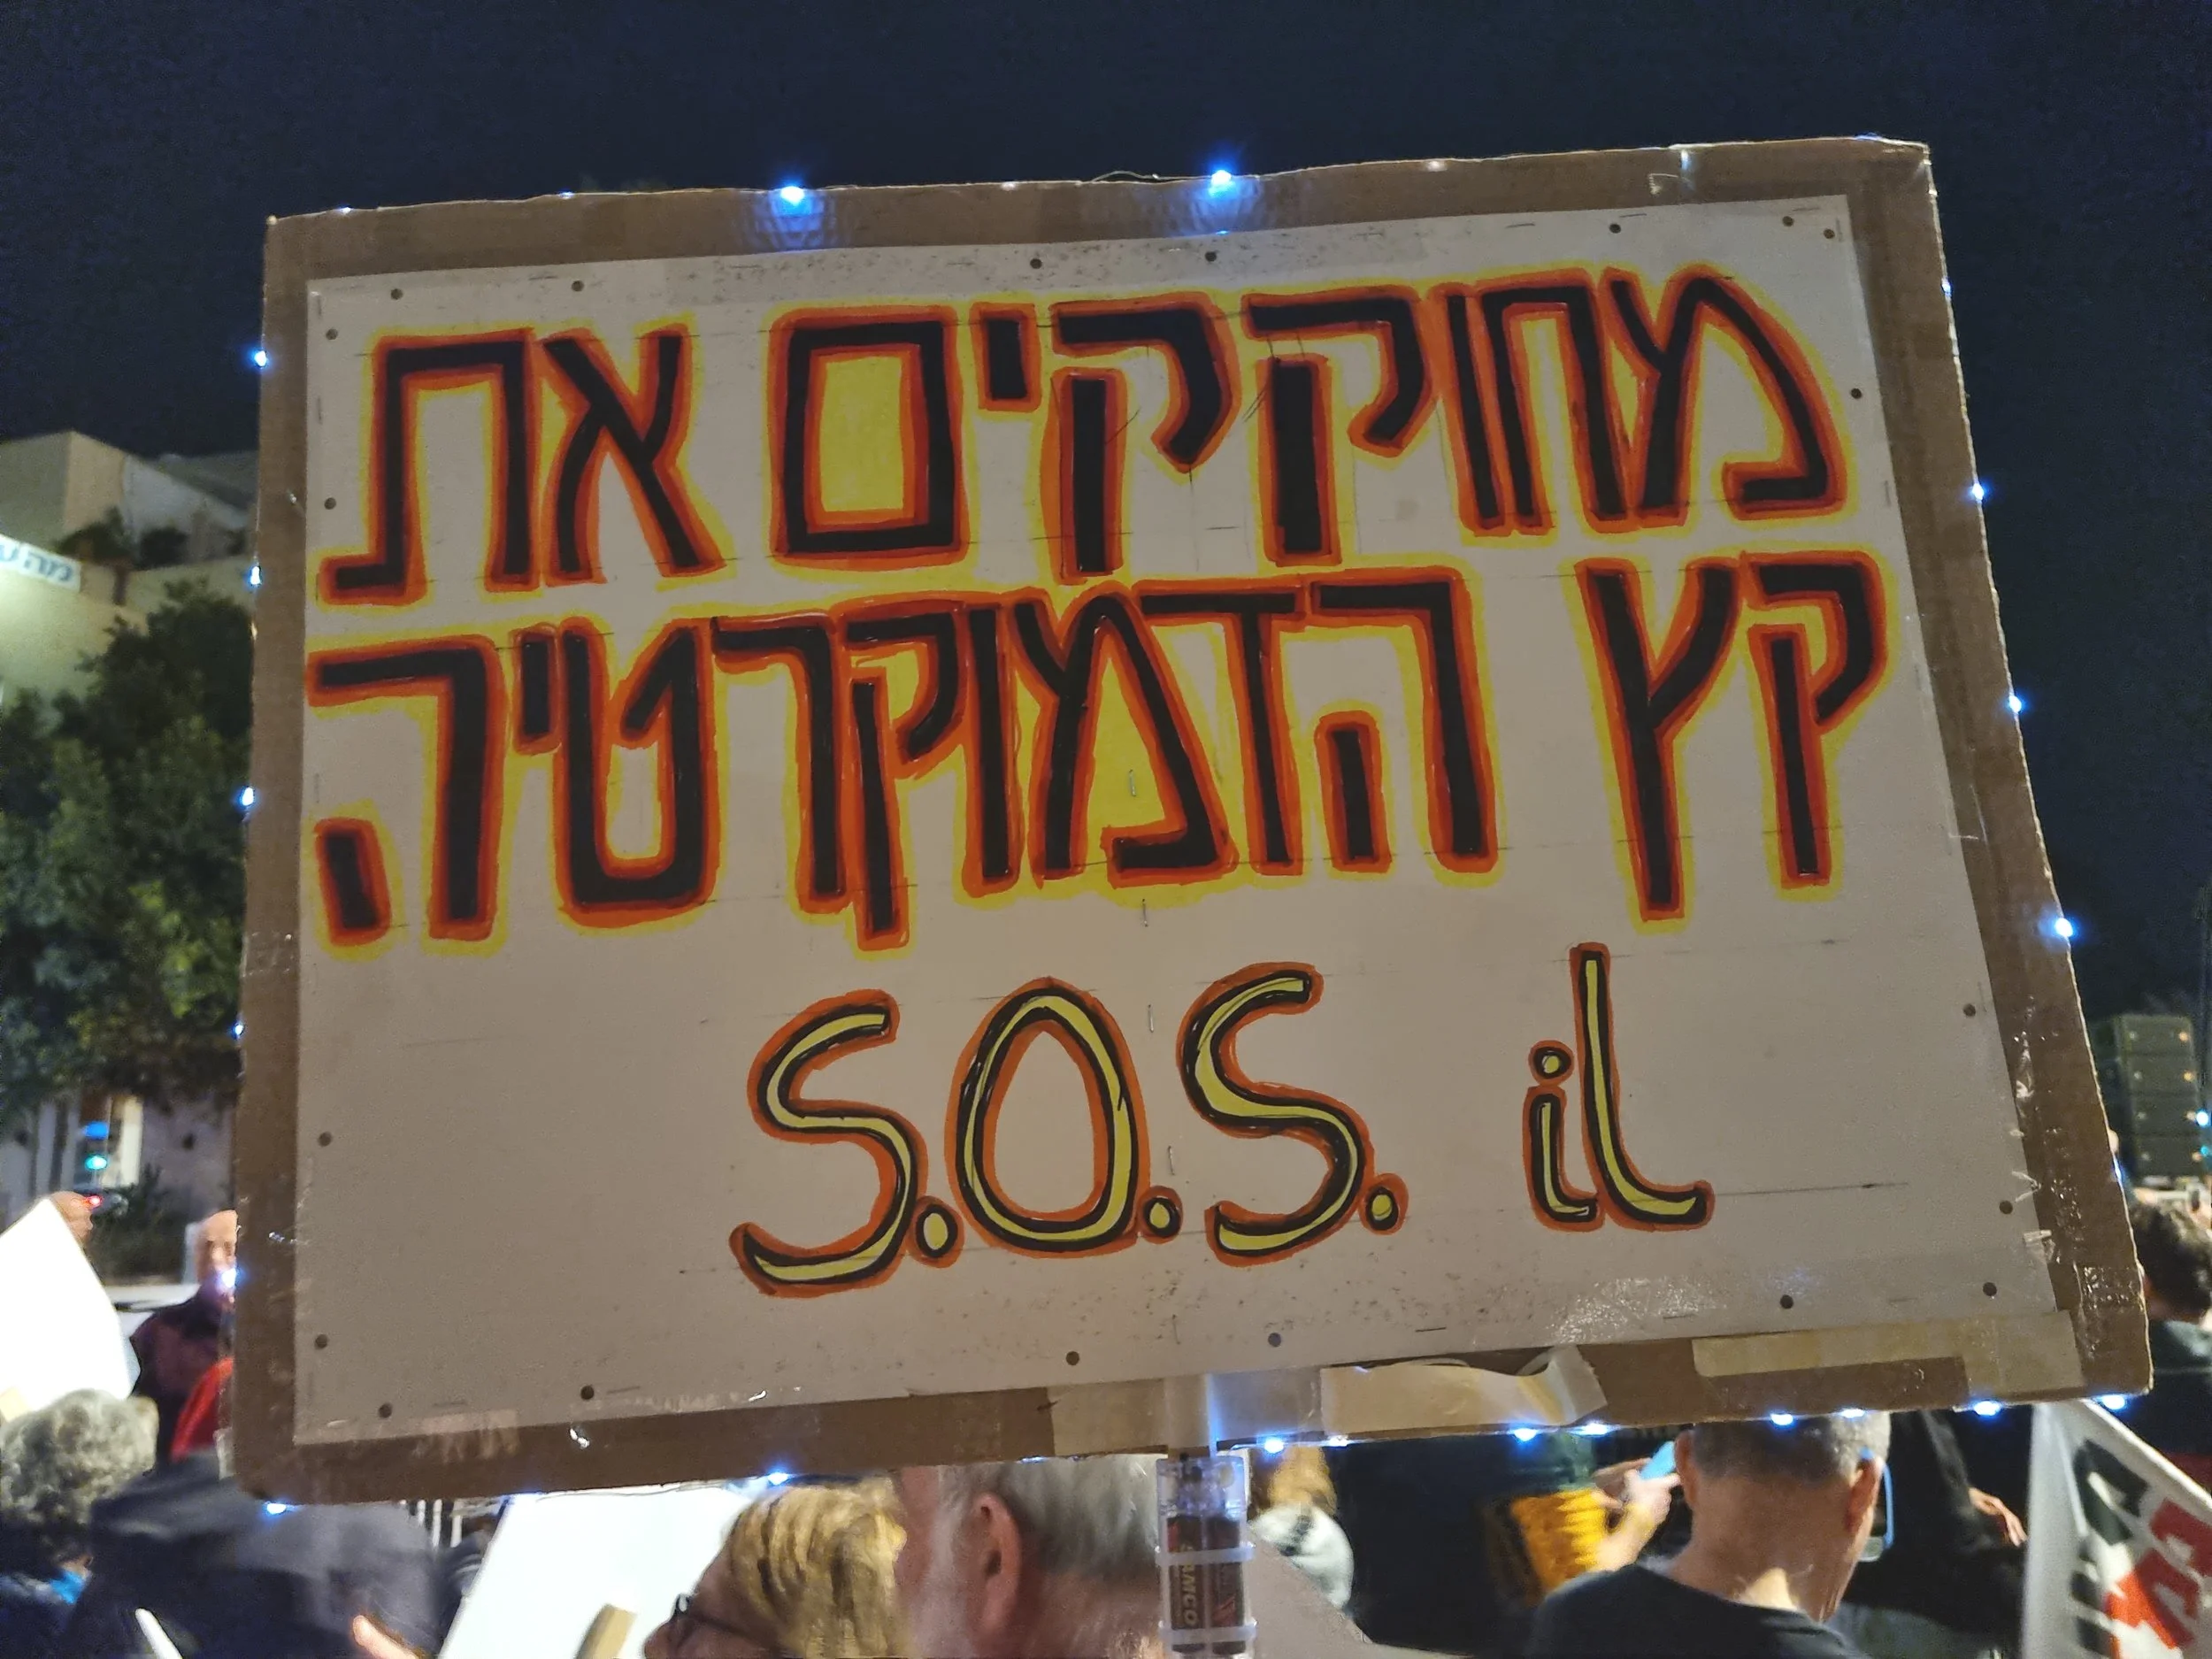 מחוקקים את
קץ הדמוקרטיה
S.O.S. il